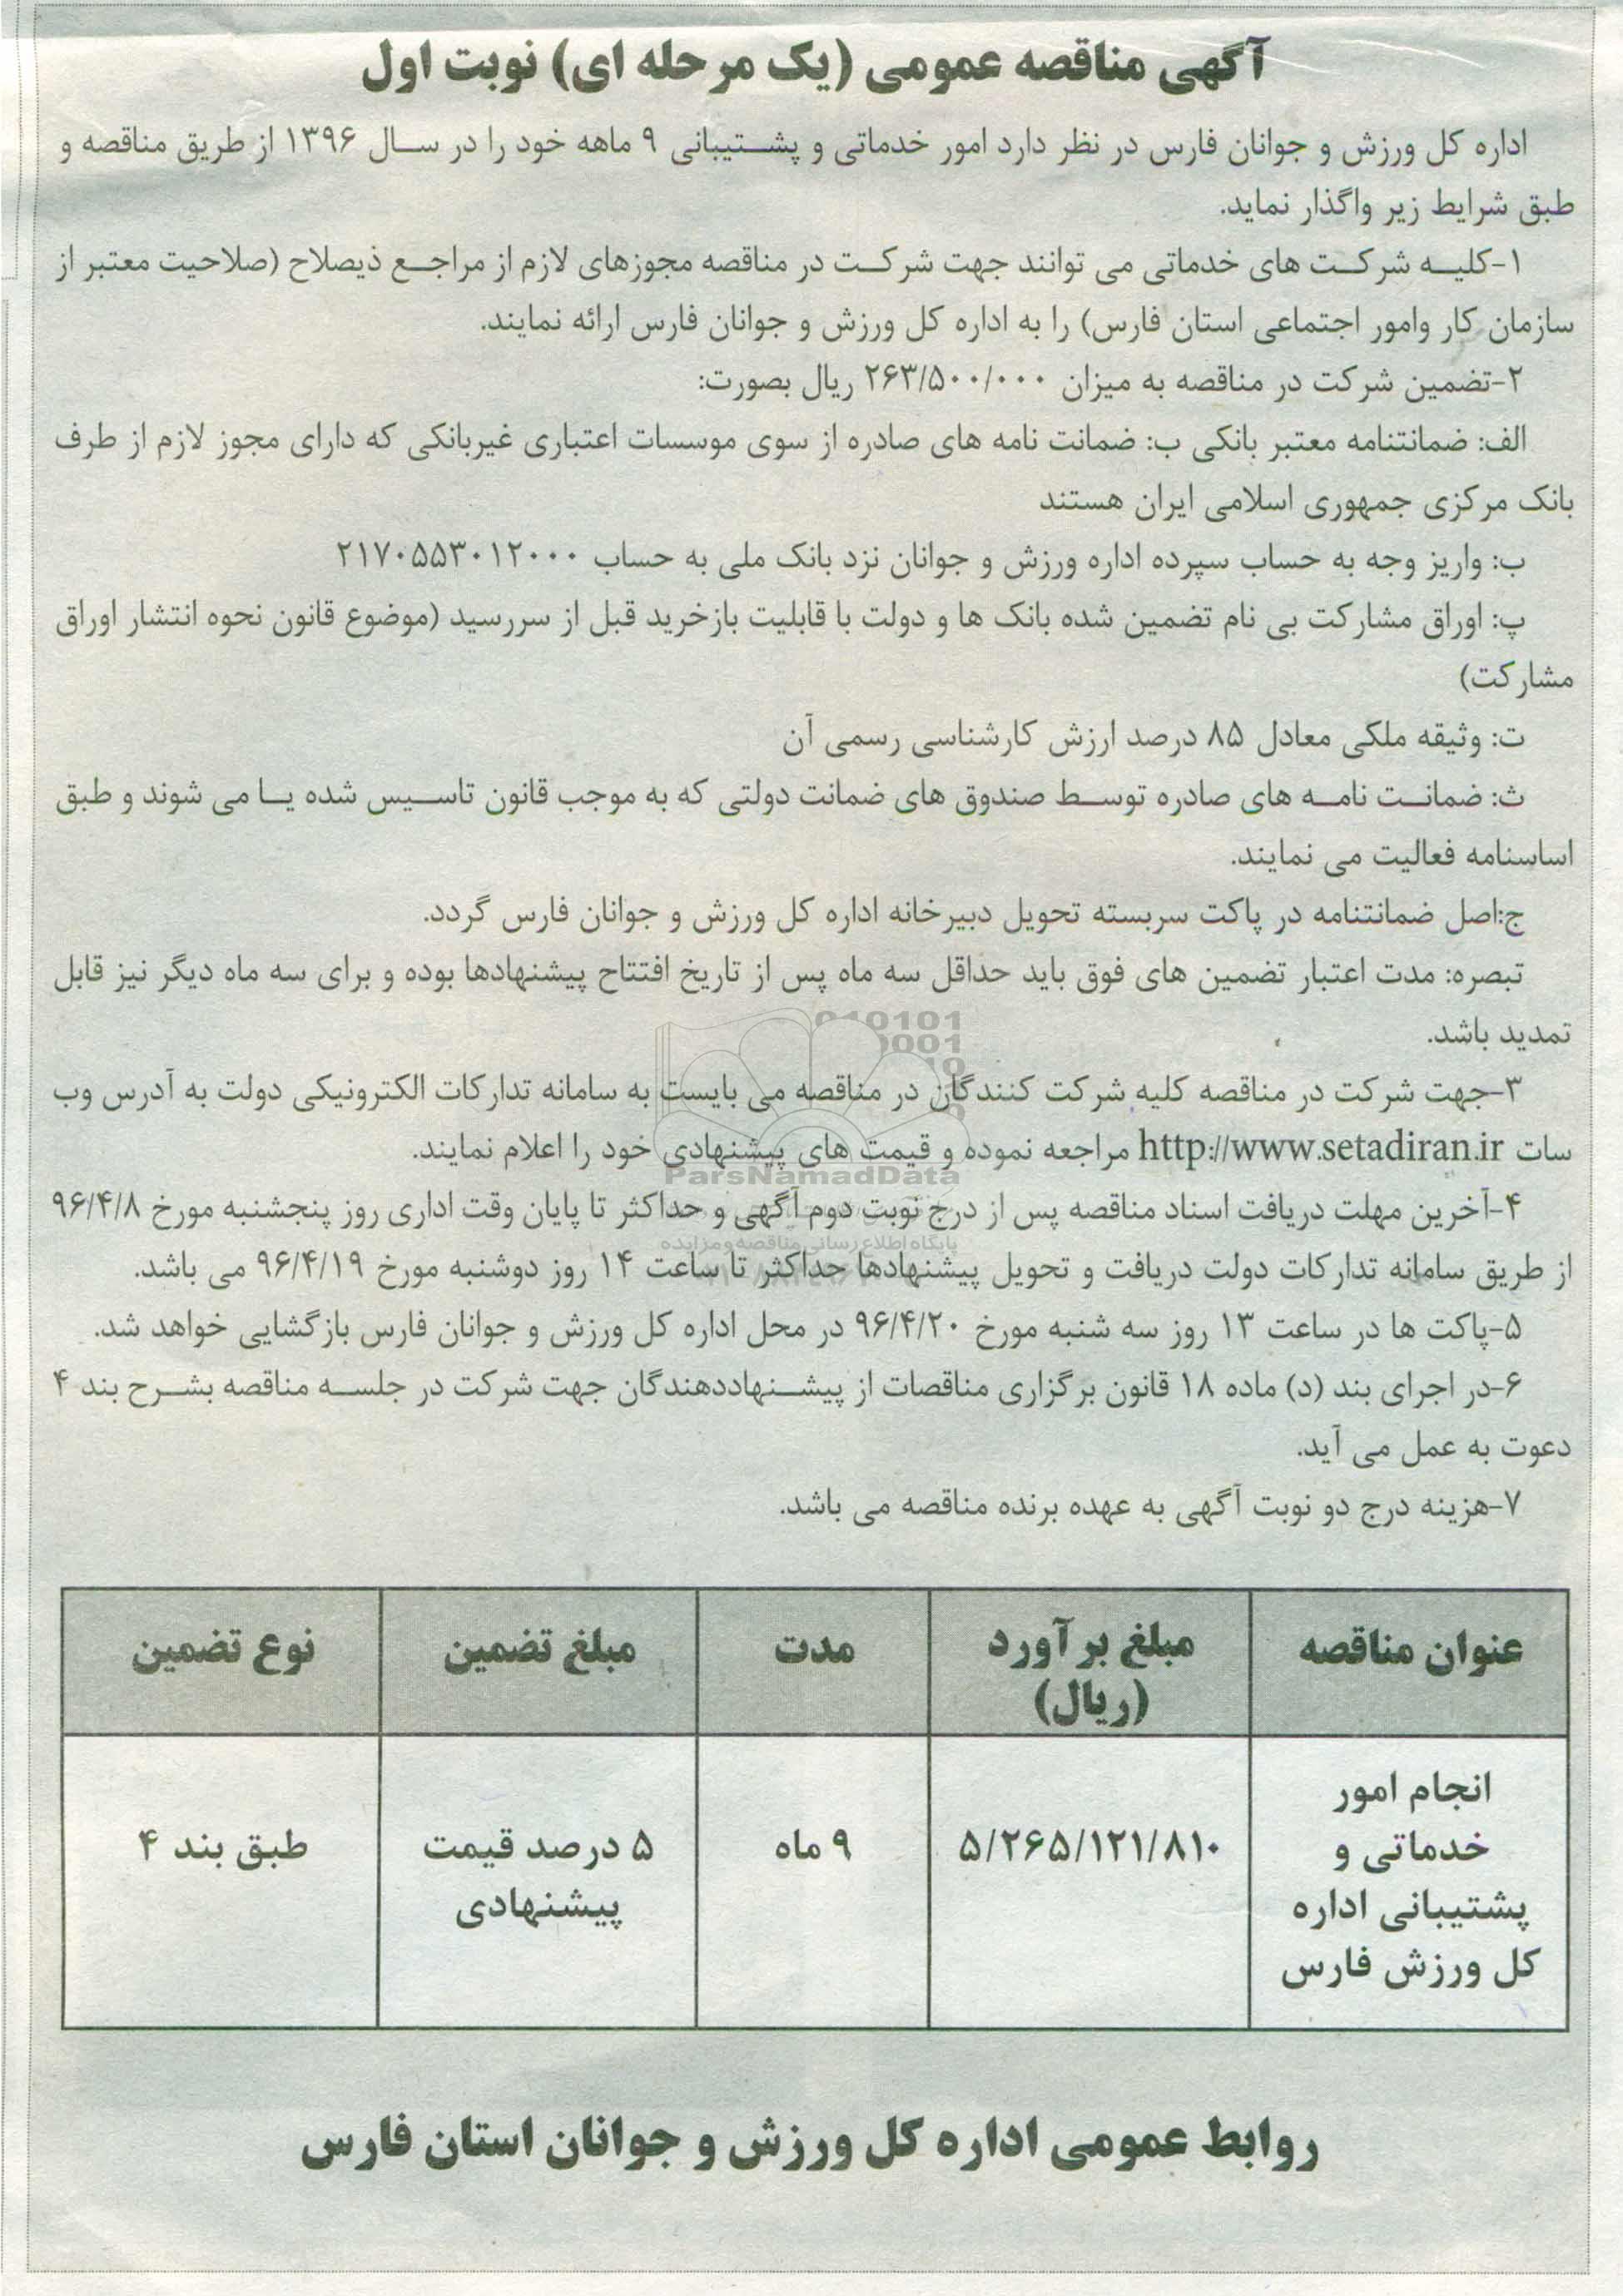 آگهی مناقصه عمومی (یک مرحله ای) نوبت اول
اداره کل ورزش و جوانان فارس در نظر دارد امور خدماتی و پشتیبانی ۹ ماهه خود را در سال ۱۳۹۶ از طریق مناقصه و
طبق شرایط زیر واگذار نماید.
۱-کلیه شرکت های خدماتی می توانند جهت شرکت در مناقصه مجوزهای لازم از مراجع ذیصلاح (صلاحیت معتبر از
سازمان کار وامور اجتماعی استان فارس) را به اداره کل ورزش و جوانان فارس ارائه نمایند.
۲-تضمین شرکت در مناقصه به میزان ۲۶۳/۵۰۰/۰۰۰ ریال بصورت:
الف: ضمانتنامه معتبر بانکی ب: ضمانت نامه های صادره از سوی موسسات اعتباری غیربانکی که دارای مجوز لازم از طرف
بانک مرکزی جمهوری اسلامی ایران هستند
ب: واریز وجه به حساب سپرده اداره ورزش و جوانان نزد بانک ملی به حساب ۲۱۷۰۵۵۳۰۱۲۰۰۰
پ: اوراق مشارکت بی نام تضمین شده بانک ها و دولت با قابلیت بازخرید قبل از سررسید (موضوع قانون نحوه انتشار اوراق
مشارکت)
ت: وثیقه ملکی معادل ۸۵ درصد ارزش کارشناسی رسمی آن
ث: ضمانت نامه های صادره توسط صندوق های ضمانت دولتی که به موجب قانون تاسیس شده یا می شوند و طبق
اساسنامه فعالیت می نمایند.
ج:اصل ضمانتنامه در پاکت سربسته تحویل دبیرخانه اداره کل ورزش و جوانان فارس گردد.
تبصره: مدت اعتبار تضمین های فوق باید حداقل سه ماه پس از تاریخ افتتاح پیشنهادها بوده و برای سه ماه دیگر نیز قابل
تمدید باشد.
۳-جهت شرکت در مناقصه کلیه شرکت کنندگان در مناقصه می بایست به سامانه تدارکات الکترونیکی دولت به آدرس وب
سات http://www.setadiran.ir مراجعه نموده و قیمت های پیشنهادی خود را اعلام نمایند.
ParsNamadData
۴-آخرین مهلت دریافت اسناد مناقصه پس از درج نوبت دوم آگهی و حداکثر تا پایان وقت اداری روز پنجشنبه مورخ ۹۶/۴/۸
پایگاه اطلاع رسانی مناقصه و مزایده
از طریق سامانه تدارکات دولت دریافت و تحویل پیشنهادها حداکثر تا ساعت ۱۴ روز دوشنبه مورخ ۹۶/۴/۱۹ می باشد.
۵-پاکت ها در ساعت ۱۳ روز سه شنبه مورخ ۹۶/۴/۲۰ در محل اداره کل ورزش و جوانان فارس بازگشایی خواهد شد.
۶-در اجرای بند (د) ماده ۱۸ قانون برگزاری مناقصات از پیشنهاددهندگان جهت شرکت در جلسه مناقصه بشرح بند ۴
دعوت به عمل می آید.
۷-هزینه درج دو نوبت آگهی به عهده برنده مناقصه می باشد.
عنوان مناقصه
مبلغ برآورد
(ریال)
مدت
مبلغ تضمین
نوع تضمین
انجام امور
خدماتی و
پشتیبانی اداره
کل ورزش فارس
۵/۲۶۵/۱۲۱/۸۱۰
۹ ماه
۵ درصد قیمت
پیشنهادی
طبق بند ۴
روابط عمومی اداره کل ورزش و جوانان استان فارس